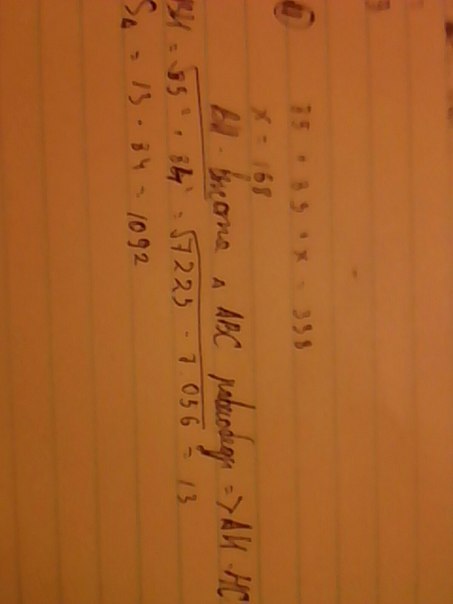 85 + 85 + x = 338
x = 168
AH - высота △ ABC равнобедр => AH - HC
AH = √85² - 84² = √7225 - 7056 = 13
S△ = 13 · 84 = 1092